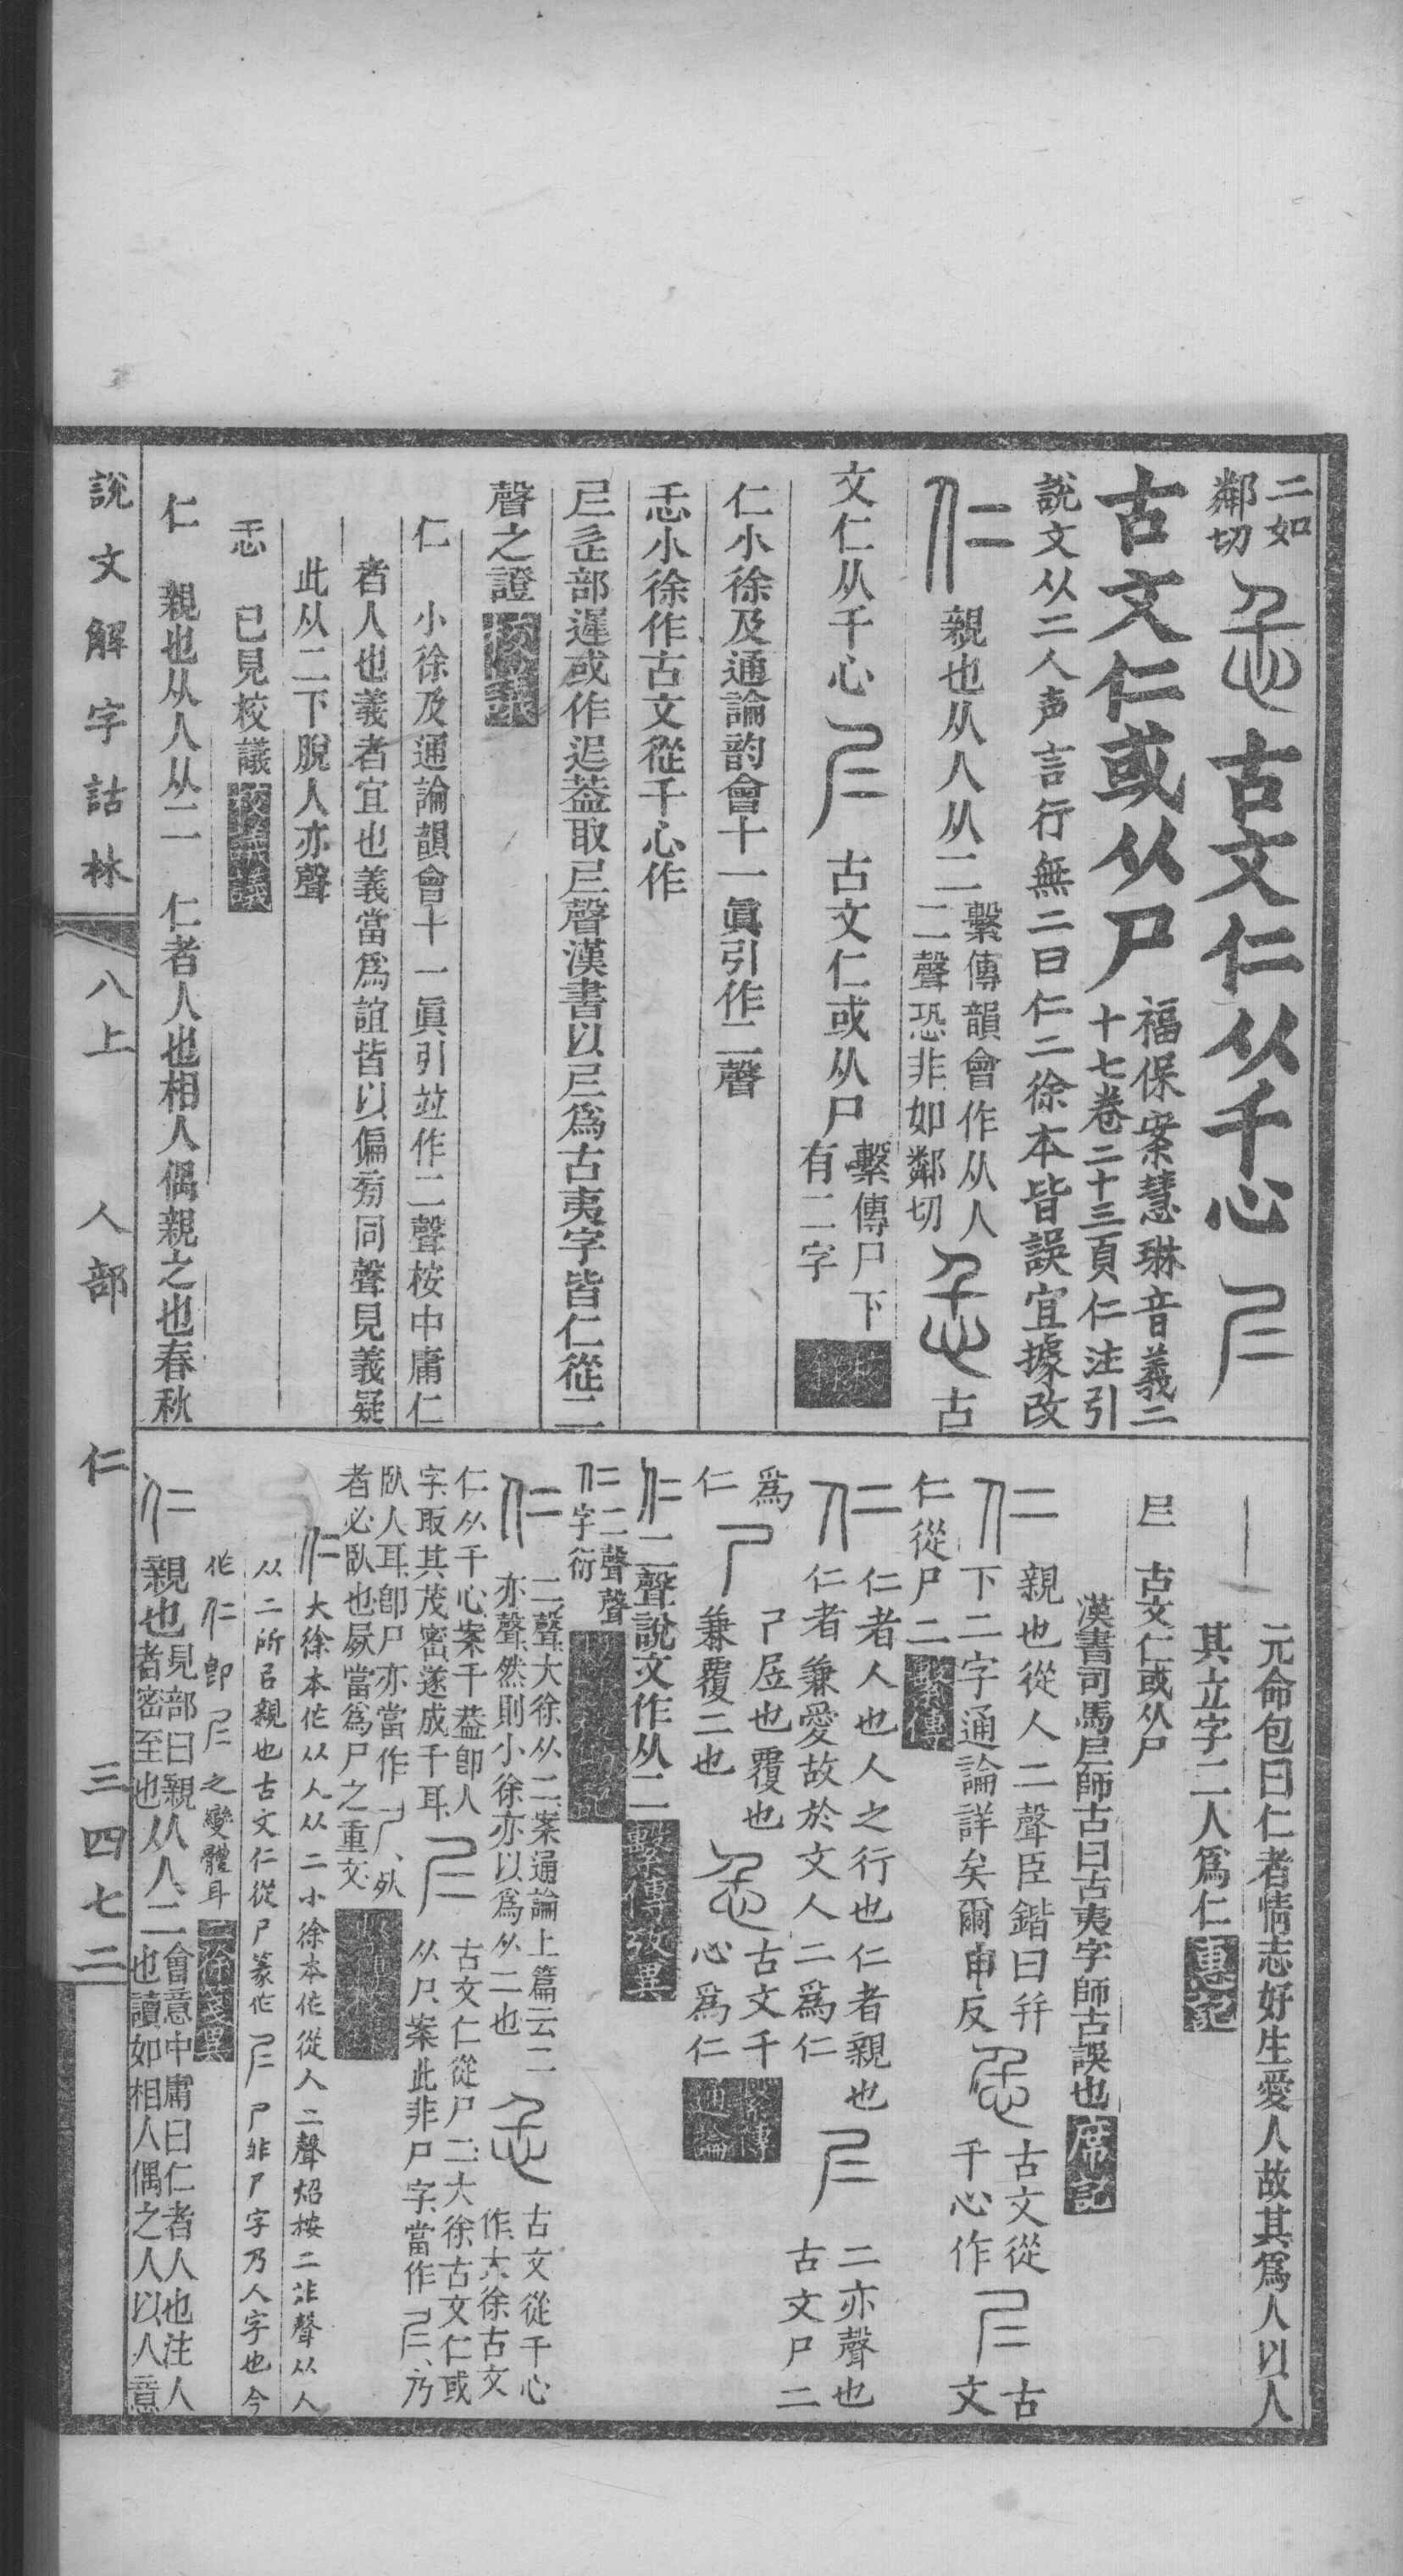 二如
鄰切
古文仁从千心
古文仁或从尸
福保案慧琳音義二
十七卷二十三頁仁注引
說文从二人声言行無二曰仁二徐本皆誤宜據改
仁 親也从人从二
繫傳韻會作从人
二聲恐非如鄰切
古
文仁从千心
古文仁或从尸
繫傳尸下
有二字
仁小徐及通論韵會十一眞引作二聲
忎小徐作古文從千心作
𡰥辵部遲或作迟葢取𡰥聲漢書以𡰥爲古夷字皆仁從二
聲之證
仁 小徐及通論韻會十一眞引竝作二聲桉中庸仁
者人也義者宜也義當爲誼皆以偏旁同聲見義疑
此从二下脫人亦聲
忎 已見校議
仁 親也从人从二 仁者人也相人偶親之也春秋
元命包曰仁者情志好生愛人故其爲人以人
其立字二人爲仁 惠記
𡰥 古文仁或从尸
漢書司馬𡰥師古曰古夷字師古誤也 席記
仁 親也從人二聲臣鍇曰幷
下二字通論詳矣爾申反
古文從
千心作
古
文
仁從尸二 繫傳
仁 仁者人也人之行也仁者親也
仁者兼愛故於文人二爲仁
二亦聲也
古文尸二
爲
仁
尸居也覆也
兼覆二也
古文千
心爲仁
繫傳
通論
仁二聲說文作从二 繫傳攷異
仁二聲聲
字衍
仁 二聲大徐从二案通論上篇云二
亦聲然則小徐亦以爲从二也
古文從千心
作大徐古文
仁从千心案千葢卽人
字取其茂密遂成千耳
古文仁從尸二大徐古文仁或
从尸案此非尸字當作𡰥乃
臥人耳卽尸亦當作
者必臥也屍當爲尸之重文
仁大徐本作从人从二小徐本作從人二聲炤桉二非聲从人
从二所㠯親也古文仁從尸篆作𡰥尸非尸字乃人字也今
作仁卽𡰥之變體耳 二徐箋異
仁 親也
見部曰親
者密至也
从人二
會意中庸曰仁者人也注人
也讀如相人偶之人以人意
說文解字詁林 八上 人部 仁 三四七二